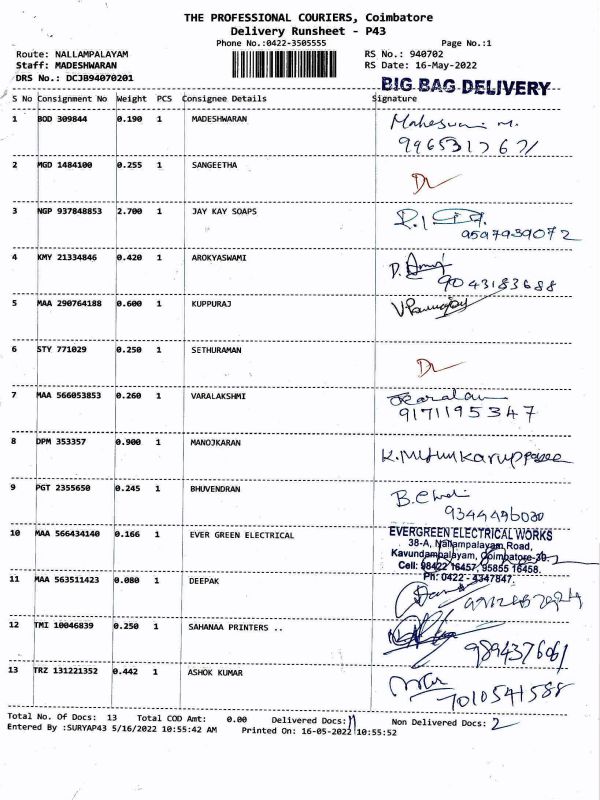 THE PROFESSIONAL COURIERS, Coimbatore
Delivery Runsheet - P43
Phone No.:0422-3505555 Page No.:1
Route: NALLAMPALAYAM RS No.: 940702
Staff: MADESHWARAN RS Date: 16-May-2022
DRS No.: DCJB94070201
BIG BAG DELIVERY
S No Consignment No Weight PCS Consignee Details Signature
1 BOD 309844 0.190 1 MADESHWARAN
2 MGD 1484100 0.255 1 SANGEETHA
3 NGP 937848853 2.700 1 JAY KAY SOAPS
9597939072
4 KMY 21334846 0.420 1 AROKYASWAMI
9043183688
5 MAA 290764188 0.600 1 KUPPURAJ
6 STY 771029 0.250 1 SETHURAMAN
7 MAA 566053853 0.260 1 VARALAKSHMI
9171195347
8 DPM 353357 0.900 1 MANOJKARAN
9 PGT 2355650 0.245 1 BHUVENDRAN
9344496030
10 MAA 566434140 0.166 1 EVER GREEN ELECTRICAL EVERGREEN ELECTRICAL WORKS
38-A, Nallampalayam Road,
Kavundampalayam, Coimbatore-30.
Cell: 98422 16457, 95855 16458.
Ph: 0422 - 4347847.
11 MAA 563511423 0.080 1 DEEPAK
12 TMI 10046839 0.250 1 SAHANAA PRINTERS ..
9894376061
13 TRZ 131221352 0.442 1 ASHOK KUMAR
7010541588
Total No. Of Docs: 13 Total COD Amt: 0.00 Delivered Docs: 11 Non Delivered Docs: 2
Entered By :SURYAP43 5/16/2022 10:55:42 AM Printed On: 16-05-2022 10:55:52